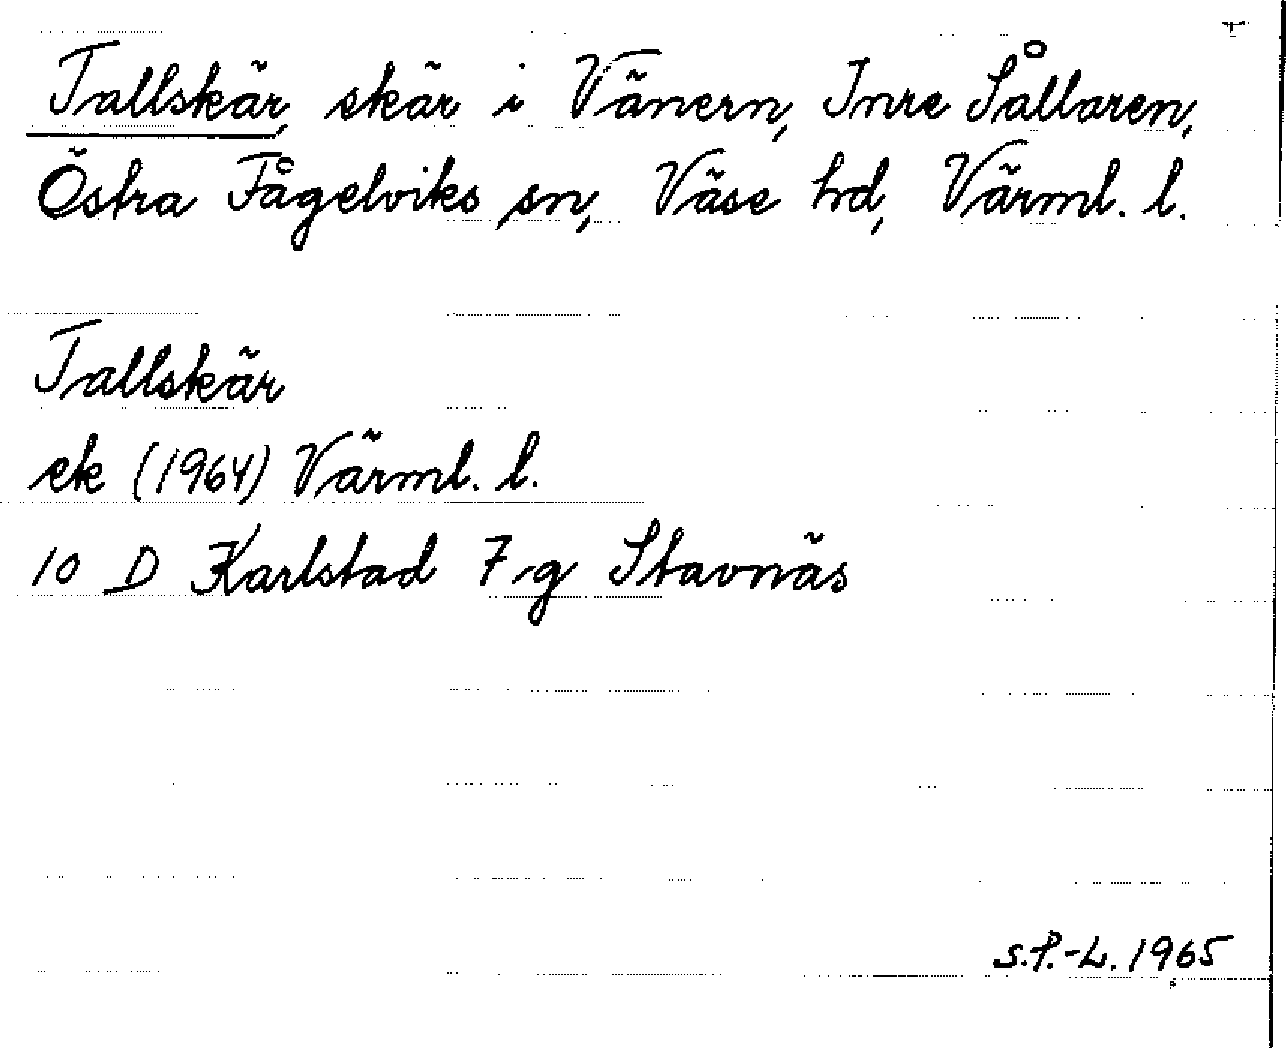 Tallskär, skär i Vänern, Inre Sållaren,
Östra Fågelviks sn, Väse hd, Värml. l.
Tallskär
ek (1964) Värml. l.
10 D Karlstad 7 g Stavnäs
S.P.-L. 1965